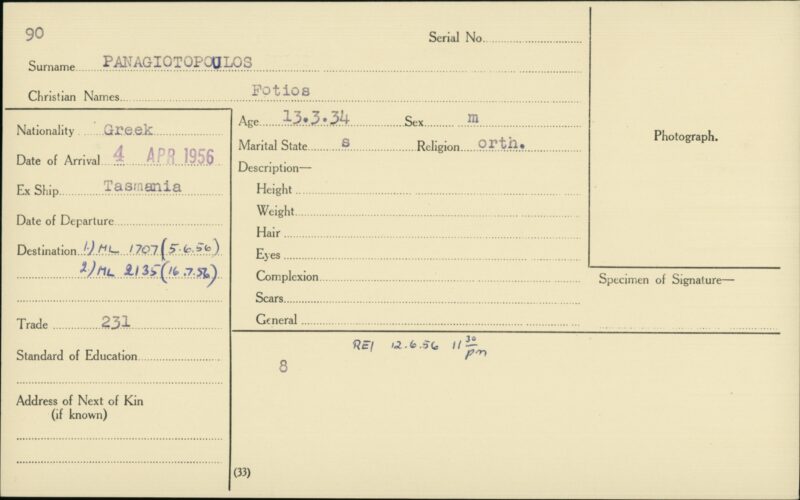 90
Serial No.
Surname PANAGIOTOPOULOS
Christian Names Fotios
Nationality Greek
Date of Arrival 4 APR 1956
Ex Ship Tasmania
Date of Departure
Destination 1) ML 1707 (5.6.56)
2) ML 2135 (16.7.56)
Trade 231
Standard of Education
Address of Next of Kin
(if known)
Age 13.3.34 Sex m
Marital State s Religion orth.
Description—
Height
Weight
Hair
Eyes
Complexion
Scars
General
Photograph.
Specimen of Signature—
REI 12.6.56 11 30 pm
8
(33)